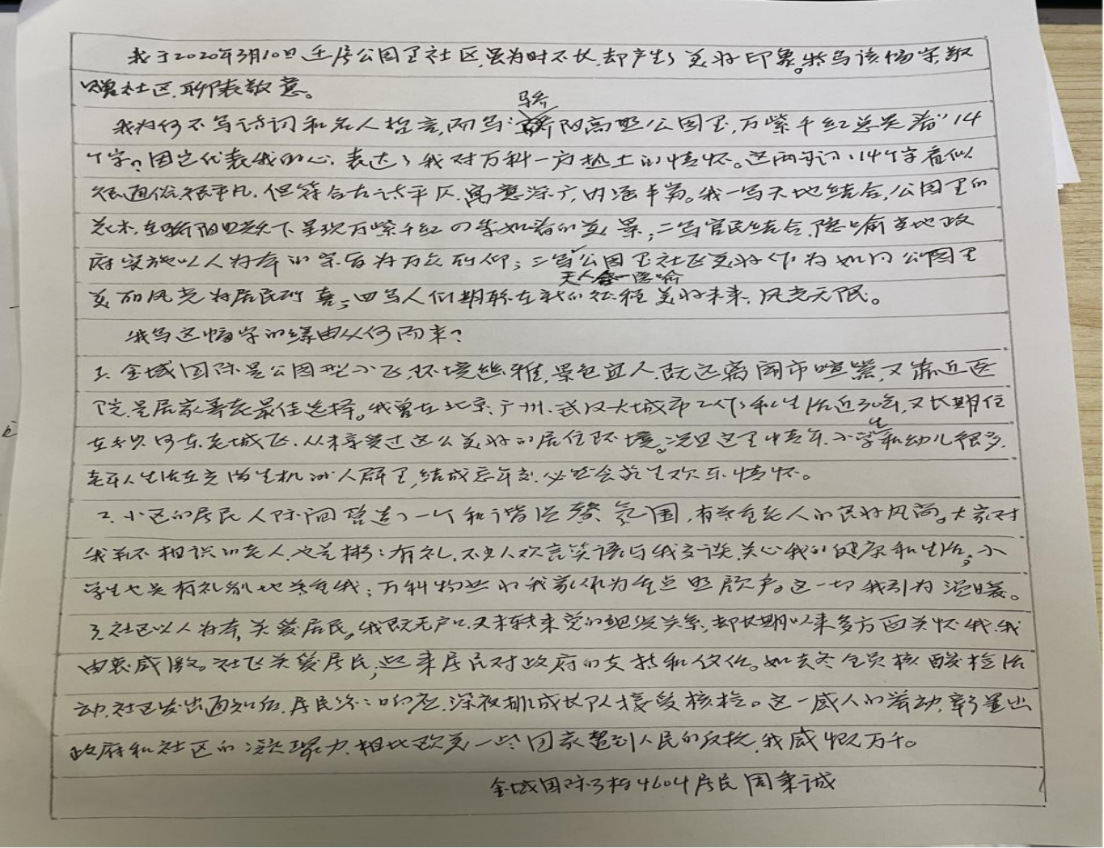 我于2020年3月10日迁居公园里社区,虽为时不长,却产生了美好印象。特写该幅字敬
赠社区,聊表敬意。
骄
我为何不写诗词和名人格言,而写:"阳高照公园里,万紫千红总是春"14
个字?因它代表我的心,表达了我对万科一方热土的情怀。这两句词,14个字看似
很通俗很平凡,但符合古诗平仄,寓意深广,内涵丰富。我一写天地结合,公园里的
花木,在骄阳照耀下呈现万紫千红的美景;二写官民结合,隐喻当地政
府实施以人为本的宗旨为万众敬仰;三写公园里社区美好作为如同公园里
天人合一隐喻
美丽风光为居民所喜;四写人们期盼在我们征程美好未来,风光无限。
我写这幅字的缘由从何而来?
1.金域国际是公园型小区,环境幽雅,景色宜人,既远离闹市喧嚣,又靠近医
院,是居家养老最佳选择。我曾在北京、广州、武汉大城市工作和生活近30年,又长期住
在河东老城区,从未享受过这么美好的居住环境。况且这里中青年、小学生和幼儿很多,
老年人生活在充满生机的人群里,结成忘年交,必然会萌生欢乐情怀。
2.小区的居民人际间营造了一个和谐温馨氛围,有尊重老人的良好风尚。大家对
我并不相识的老人,也是彬彬有礼,不少人欢言笑语与我交谈,关心我的健康和生活,小
学生也是有礼貌地尊重我;万科物业将我家作为重点照顾户。这一切我引为温暖。
3.社区以人为本,关爱居民,我既无户口,又未转来党的组织关系,却长期以来多方面关怀我,我
由衷感激。社区关爱居民,带来居民对政府的支持和信任。如去冬全员核酸检治
动,社区发出通知后,居民纷纷响应,深夜排成长队接受核检。这一感人的举动,彰显出
政府和社区的凝聚力,相比欧美一些国家遭到人民的反抗,我感慨万千。
金域国际3栋4604居民 周秉诚